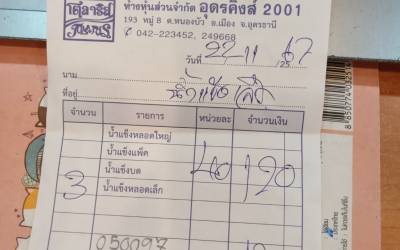 ห้างหุ้นส่วนจำกัด อุดรคิงส์ 2001
193 หมู่ 8 ต.หนองบัว อ.เมือง จ.อุดรธานี
042-223452, 249668
วันที่ 22-11-67
นาม
ที่อยู่ น้ำแข็ง
จำนวน รายการ หน่วยละ จำนวนเงิน
น้ำแข็งหลอดใหญ่
น้ำแข็งแพ็ค
3 น้ำแข็งบด 40 120
น้ำแข็งหลอดเล็ก
050097